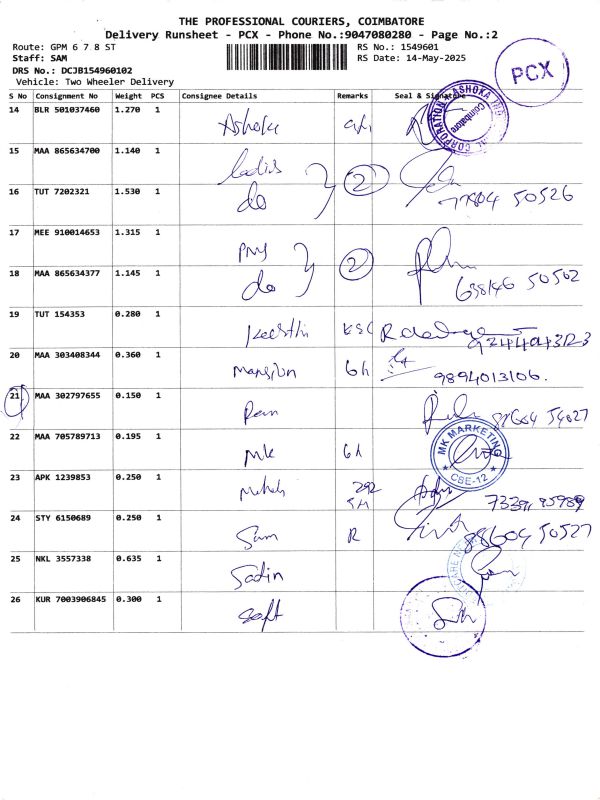 THE PROFESSIONAL COURIERS, COIMBATORE
Delivery Runsheet - PCX - Phone No.:9047080280 - Page No.:2
Route: GPM 6 7 8 ST
RS No.: 1549601
Staff: SAM
RS Date: 14-May-2025
DRS No.: DCJB154960102
Vehicle: Two Wheeler Delivery
PCX
S No Consignment No Weight PCS Consignee Details Remarks Seal & Signature
14 BLR 501037460 1.270 1 Ashoka
15 MAA 865634700 1.140 1 Ladies 2
16 TUT 7202321 1.530 1 do 77804 50526
17 MEE 910014653 1.315 1 PMS 2
18 MAA 865634377 1.145 1 do 638146 50502
19 TUT 154353 0.280 1 Keerthi
20 MAA 303408344 0.360 1 mansion 6h 9894013106.
21 MAA 302797655 0.150 1 Ram
22 MAA 705789713 0.195 1 Mk 6h
MK MARKETING
CBE-12
23 APK 1239853 0.250 1 292
24 STY 6150689 0.250 1 Sam R 88604 50527
25 NKL 3557338 0.635 1 Sadin
26 KUR 7003906845 0.300 1 Soft